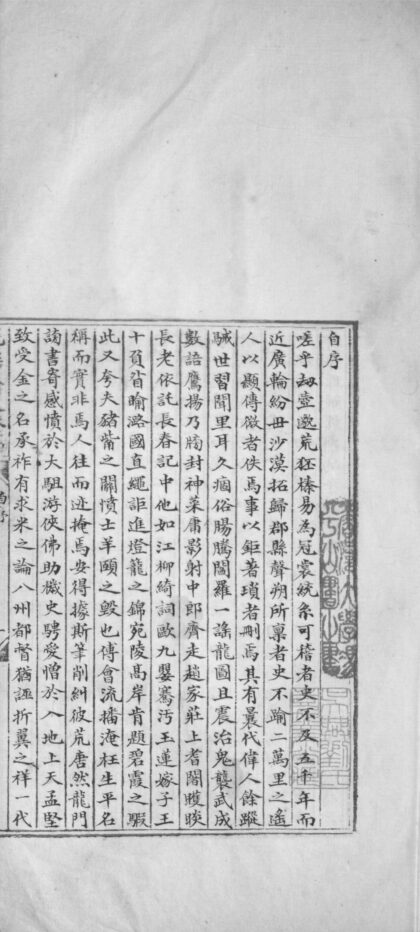 自序
嗟乎劫壹邈荒狉榛易為冠裳統系可稽者史不及五千年而
近廣輪紛毋沙漠拓歸郡縣聲朔所稟者史不踰二萬里之遙
人以顯傳微者佚焉事以鉅著瑣者刪焉其有曩代偉人餘蹤
駴世習聞里耳久痼俗腸騰閻羅一謠龍圖且震治鬼襲武成
數語鷹揚乃封神菜庸影射中郎齊走趙家莊上耆闍矆睒
長老依託長春記中他如江柳綺詞歐九嬰騫汚玉蓮嫁子王
十負眚喻潞國直繩詎進燈龍之錦宛陵高岸肯題碧霞之騢
此又夸夫豬觜之關憤士羊頤之毀也傅會流播淹枉生平名
稱而實非焉人往而迹掩焉安得據斯筆削糾彼荒唐然龍門
謗書寄感憤於大駔游俠佛助穢史騁愛憎於入地上天孟堅
致受金之名承祚有求米之論八州都督猶誣折翼之祥一代